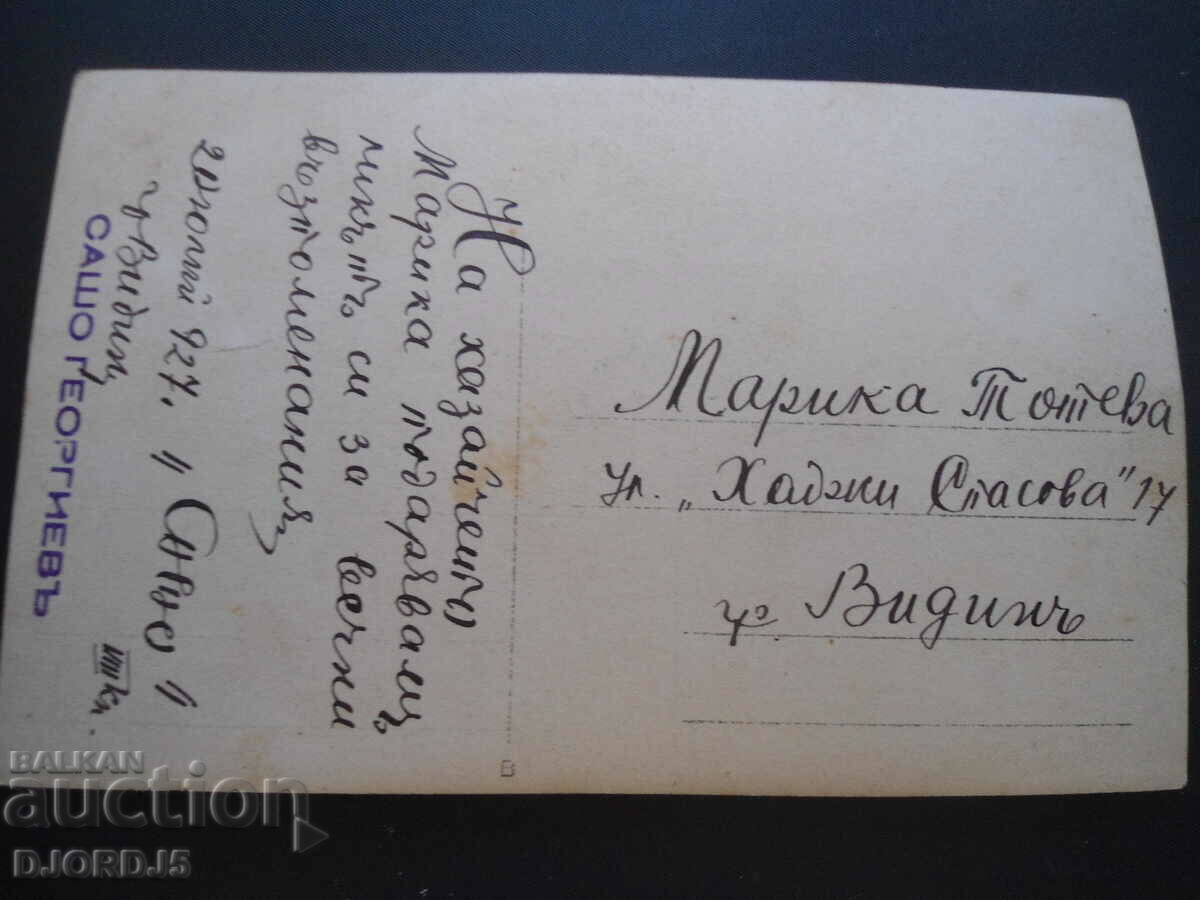 На хазайчето
Марика подарявамъ
ликътъ си за вечни
възпоменания
2 юлий 927, " Сашо "
гр Видинъ
САШО ГЕОРГИЕВЪ
Марика Тотева
ул. „Хаджи Спасова" 17
гр Видинъ
BALKAN
auction
DJORDJ5